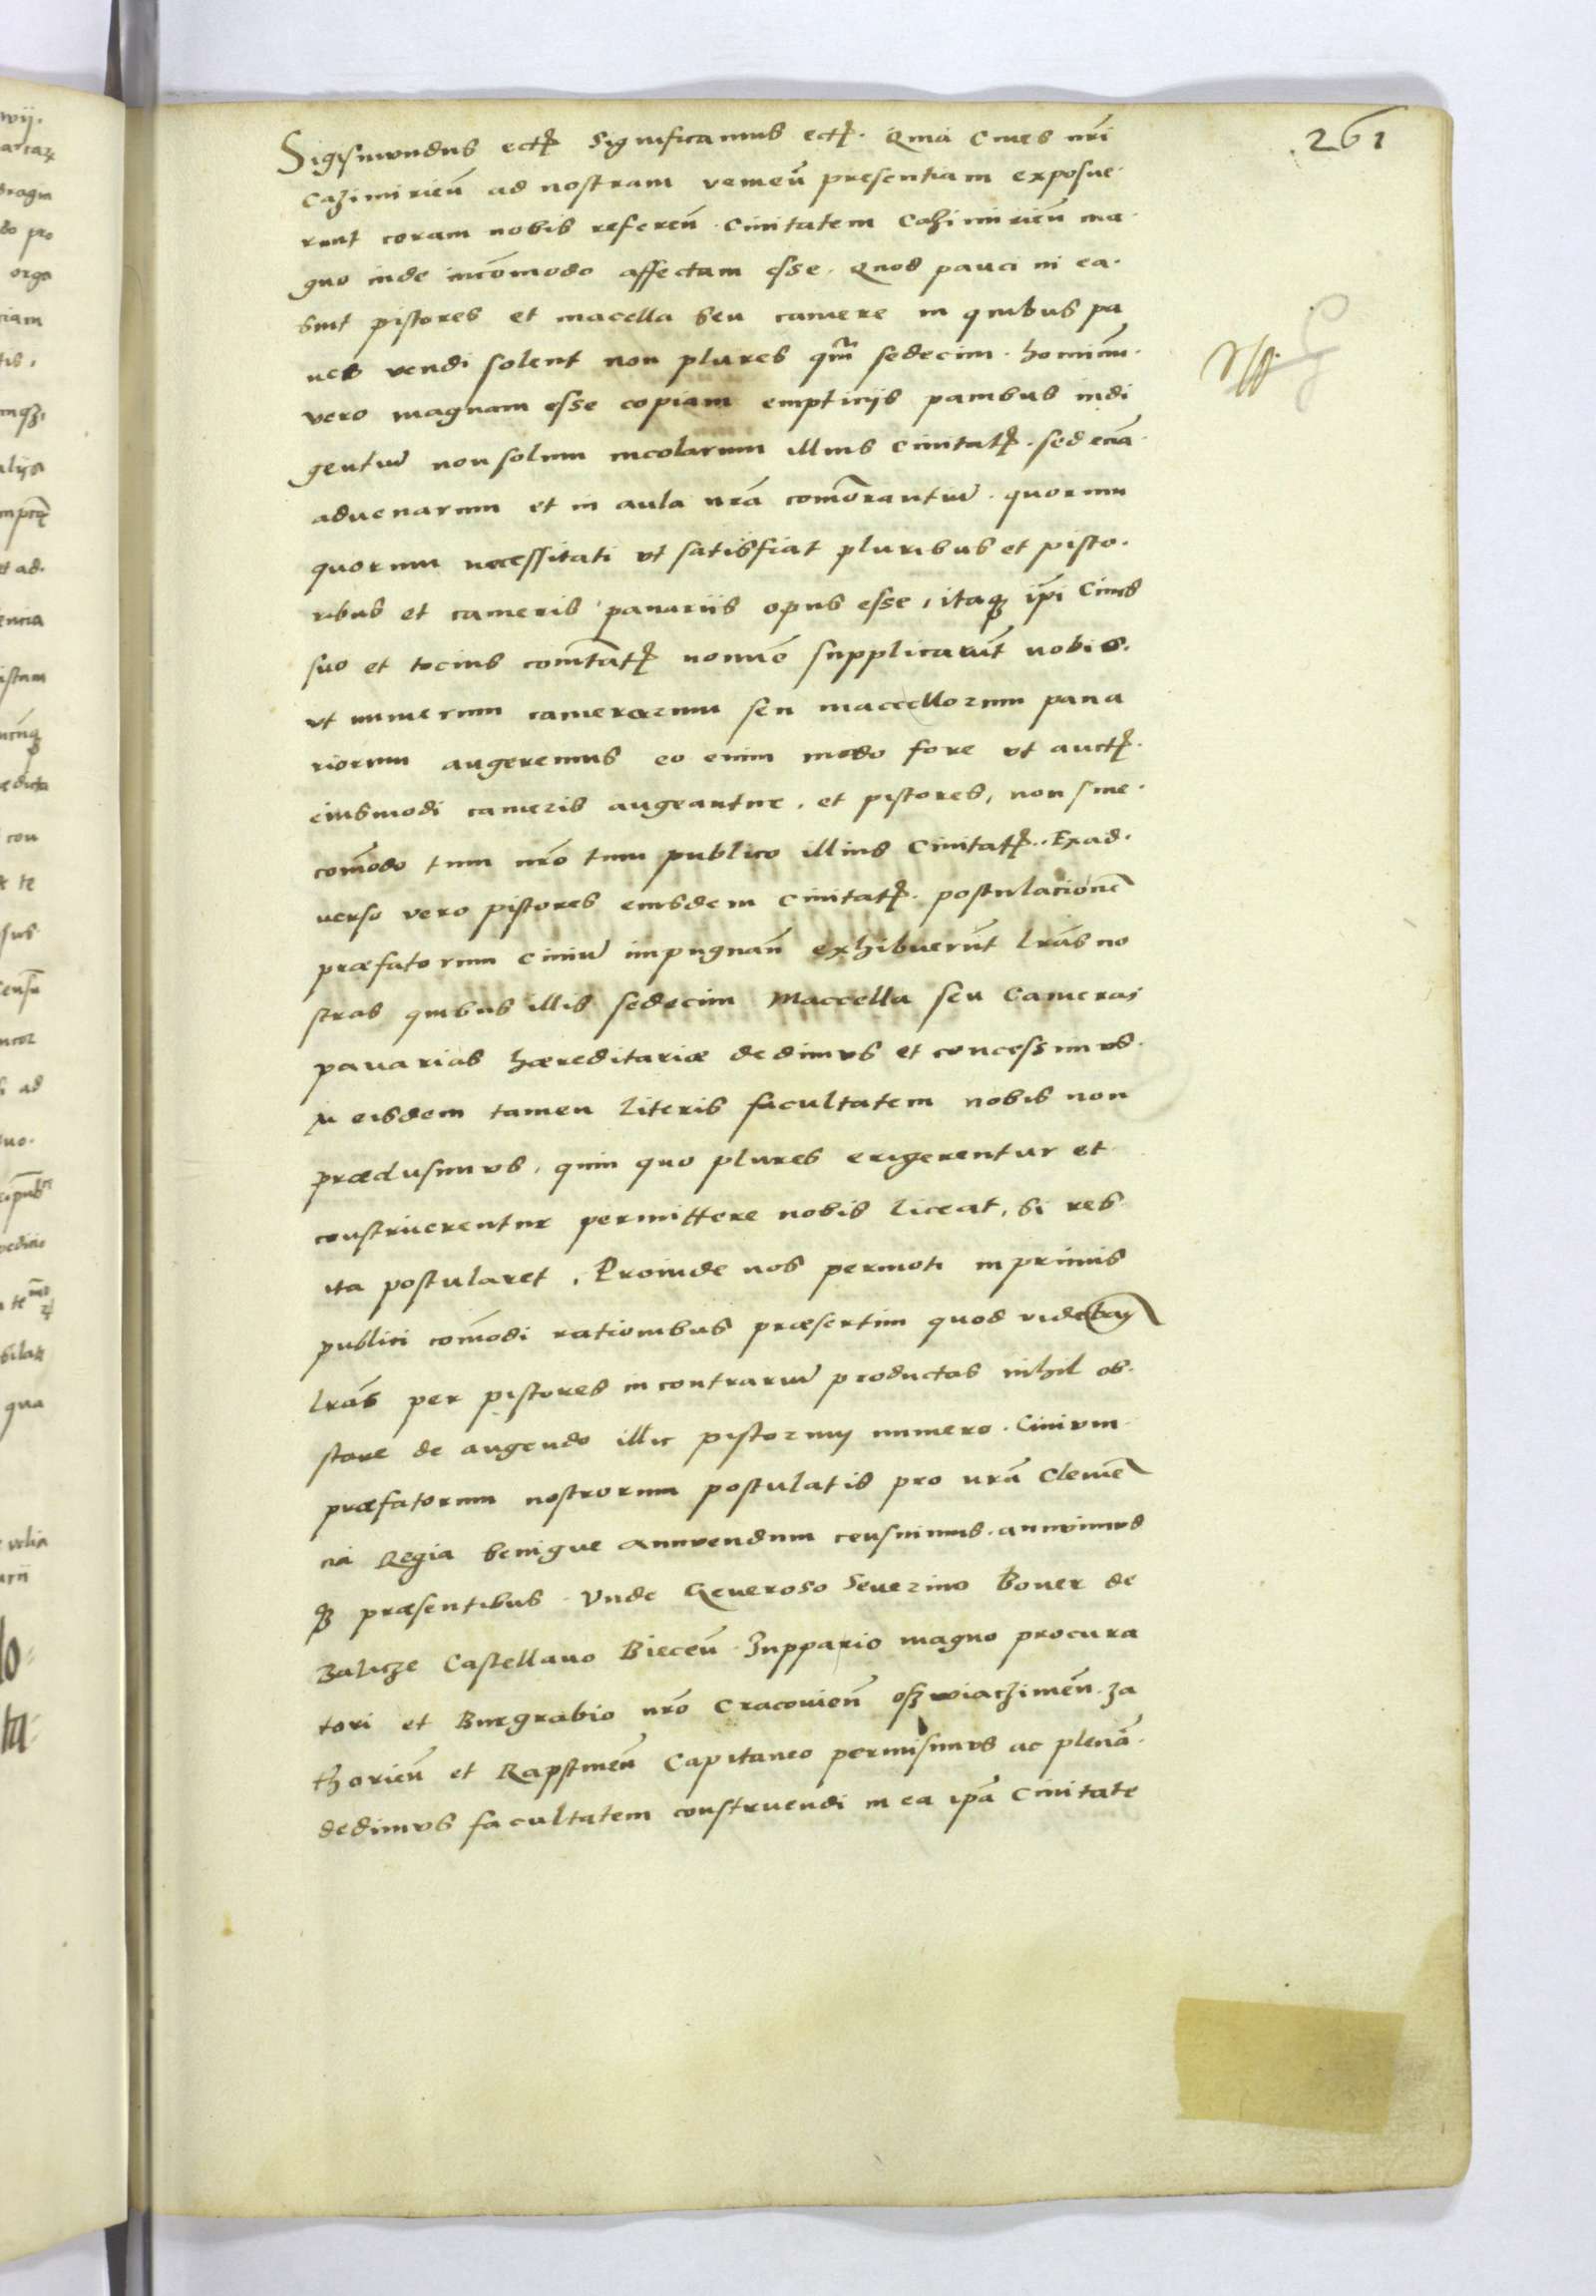 261
Sigismundus ectꝭ Significamus ectꝭ. Quia Ciues nr̃i
Cazimirieñ ad nostram venieñ presentiam exposue-
runt coram nobis refereñ. Ciuitatem Cazimirieñ ma-
gno inde incõmodo affectam esse, Quod pauci in ea
sint pistores et macella seu camere in quibus pa
nes vendi solent non plures qm̃ sedecim. hominũ
vero magnam esse copiam empticijs panibus indi
gentiũ non solum incolarum illius Ciuitatꝭ. sed eciã
aduenarum et in aula nr̃a comõrantiũ. quorum
quorum necessitati vt satisfiat pluribus et pisto-
ribus et cameris panariis opus esse, itaqꝫ ip̃i Ciues
suo et tocius com̃tatꝭ nomĩe supplicarũt nobis.
vt numerum camerarum seu maccellorum pana
riorum augeremus eo enim modo fore vt auctꝭ
eiusmodi cameris augeantur, et pistores, non sine
com̃odo tum nr̃o tum publico illius Ciuitatꝭ. Ex ad-
uerso vero pistores eiusdem Ciuitatꝭ. postulacionẽ
præfatorum Ciuiũ impugnañ exhibuerũt lr̃as no
stras quibus illis sedecim Maccella seu Cameras
panarias hæreditariæ dedimus et concessimus.
In eisdem tamen literis facultatem nobis non
præclusimus, quin quo plures erigerentur et
construerentur permittere nobis liceat, si res
ita postularet. Proinde nos permoti in primis
publici com̃odi rationibus præsertim quod videbam̃
lr̃as per pistores in contrariũ productas nihil ob-
stare de augendo illic pistorum numero. Ciuium
præfatorum nostrorum postulatis pro nr̃a Clemẽ
cia Regia benigne annuendum censuimus. annuimus
qꝫ præsentibus. Vnde Generoso Seuerino Boner de
Balicze Castellano Bieceñ. Zuppario magno procura
tori et Burgrabio nr̃o Cracouieñ oszwiaczimeñ. za
thorieñ et Rapstineñ Capitaneo permisimus ac plenã
dedimus facultatem construendi in ea ip̃a Ciuitate